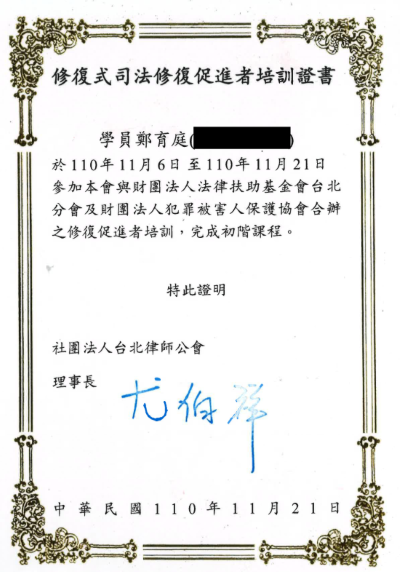 修復式司法修復促進者培訓證書
學員鄭育庭( )
於110年11月6日至110年11月21日
參加本會與財團法人法律扶助基金會台北
分會及財團法人犯罪被害人保護協會合辦
之修復促進者培訓，完成初階課程。
特此證明
社團法人台北律師公會
理事長
尤伯祥
中華民國110年11月21日